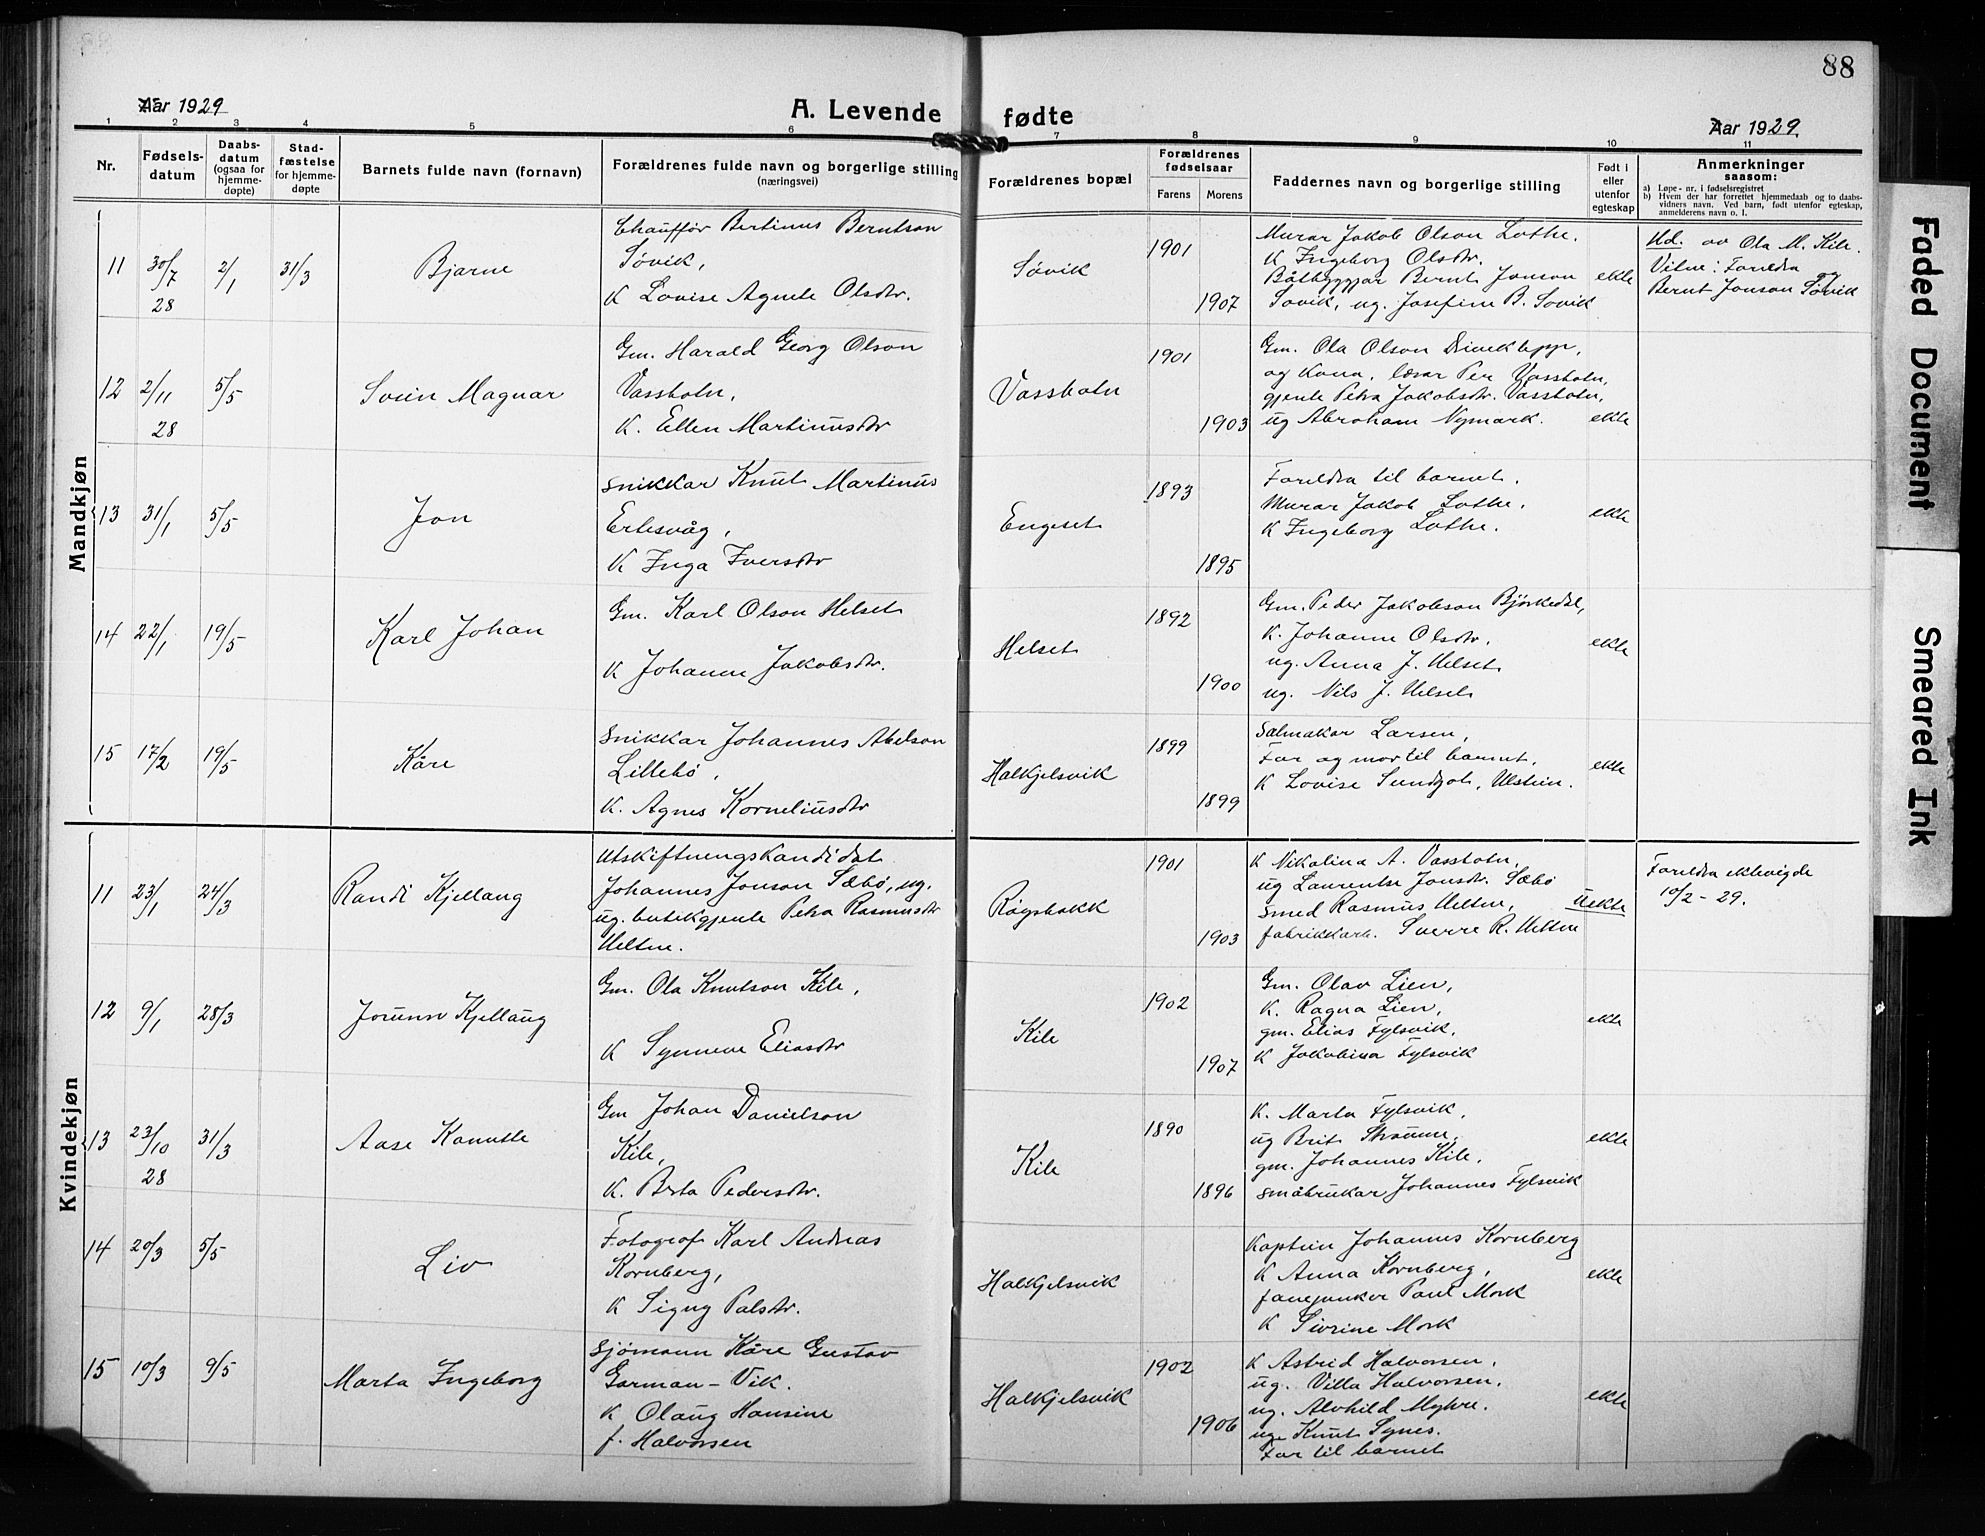 88
Aar 1929
A. Levende fødte
Aar 1929.
1 2 3 4 5 6 7 8 9 10 11
Nr.
Fødsels-
datum
Daabs-
datum
(ogsaa for
hjemme-
døpte)
Stad-
fæstelse
for hjemme-
døpte
Barnets fulde navn (fornavn)
Forældrenes fulde navn og borgerlige stilling
(næringsvei)
Forældrenes bopæl
Forældrenes
fødselsaar
Farens Morens
Faddernes navn og borgerlige stilling
Født i
eller
utenfor
egteskap
Anmerkninger
saasom:
a) Løpe-nr. i fødselsregistret
b) Hvem der har forrettet hjemmedaab og to daabs-
vidners navn. Ved barn, født utenfor egteskap,
anmelderens navn o. l.
Mandkjøn
11 30/7 28 2/1 31/3 Bjarne
Chauffør Bertinus Berntson
Søvik,
K Lovise Agnete Olsdtr.
Søvik
1901
1907
Murar Jakob Olson Lothe.
K Ingeborg Olsdtr.
Båtbyggjar Bernt Jonson
Søvik, ug. Josefine B. Søvik
ekte
Hd. av Ola M. Kile.
Vitne: Foreldra og
Bernt Jonson Søvik
12 2/11 28 5/5 Svein Magnar
Gm. Harald Georg Olson
Vassbotn,
K. Ellen Martinusdtr
Vassbotn
1901
1903
Gm. Ola Olson Driveklepp,
og kona, lærar Per Vassbotn,
gjente Petra Jakobsdtr. Vassbotn,
ug Abraham Nymark.
ekte
13 31/1 5/5 Jon
Snikkar Knut Martinus
Ertesvåg,
K Inga Iversdtr
Engeset
1893
1895
Foreldra til barnet.
Murar Jakob Lothe.
K Ingeborg Lothe.
ekte
14 22/1 19/5 Karl Johan
Gm. Karl Olson Helset
K Johanne Jakobsdtr.
Helset
1892
1900
Gm. Peder Jakobson Bjørkedal,
K. Johanne Olsdtr.
ug. Anna J. Helset
ug. Nils J. Helset
ekte
15 17/2 19/5 Kåre
Snikkar Johannes Abelson
Lillebø,
K. Agnes Korneliusdtr
Halkjelsvik
1899
1899
Salmakar Larsen,
Far og mor til barnet.
K Lovise Sundgot, Ulstein.
ekte
Kvindekjøn
11 23/1 24/3 Randi Kjellaug
Utskiftningskandidat
Johannes Jonson Sæbø, ug.
ug. butikgjente Petra Rasmusdtr
Heltne.
Røysbakk
1901
1903
K Nikolina A. Vassbotn,
ug Laurentse Jonsdtr. Sæbø
Smed Rasmus Heltne,
fabrikkarb. Sverre R. Heltne
Uekte
Foreldra ektevigde
10/2 - 29.
12 9/1 28/3 Jorunn Kjellaug
Gm. Ola Knutson Kile,
K Synneve Eliasdtr
Kile
1902
1907
Gm. Olav Lien,
K. Ragna Lien,
gm. Elias Fylsvik,
K Jakobina Fylsvik
ekte
13 23/10 28 31/3 Aase Kamille
Gm Johan Danielson
Kile,
K. Berta Pedersdtr.
Kile
1890
1896
K. Marta Fylsvik,
ug Brit Straume,
gm. Johannes Kile,
småbrukar Johannes Fylsvik
ekte
14 20/3 5/5 Liv
Fotograf Karl Andreas
Kornberg,
K Signy Palsdtr.
Halkjelsvik
Kaptein Johannes Kornberg
K Anna Kornberg,
fanejunker Paul Mork
K Sivrine Mork
ekte
15 10/3 9/5 Marta Ingeborg
Sjømann Kåre Gustav
Garman-Vik.
K Olaug Hansine
f. Halvorsen
Halkjelsvik
1902
1906
K Astrid Halvorsen,
ug. Villa Halvorsen,
ug. Alvhild Myhre.
ug. Knut Synes.
Far til barnet
ekte
Faded Document
Smeared Ink